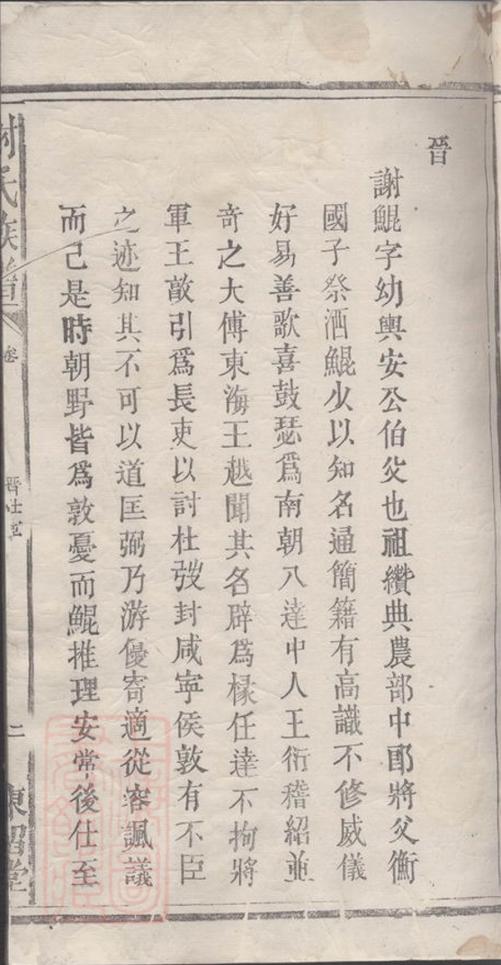 晉
謝鯤字幼輿安公伯父也祖纘典農部中郎將父衡
國子祭酒鯤少以知名通簡籍有高識不修威儀
好易善歌喜鼓瑟爲南朝八達中人王衍嵇紹並
奇之大傅東海王越聞其名辟爲椽任達不拘將
軍王敵引爲長吏以討杜弢封咸寕侯敦有不臣
之迹知其不可以道匡弼乃游優寄適從容諷議
而己是時朝野皆爲敦憂而鯤推理安常後仕至
謝氏族譜
卷
二
東留堂